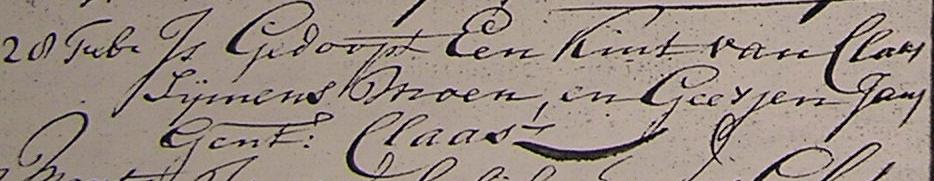 28 Febr Is Gedoopt Een Kint van Claas
Sijmens Moen, en Geertjen Jans
Gent: Claas